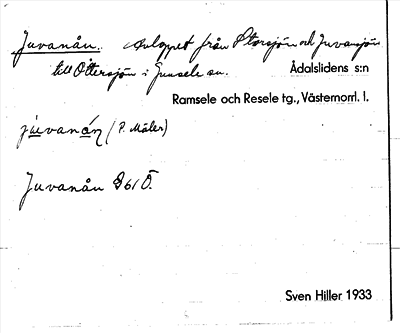 Juvanån. Avloppet från Storsjön och Juvansjön
till Ottersjön i Junsele sn. Ådalslidens s:n
Ramsele och Resele tg., Västernorrl. l.
juvanán (P. Mäler)
Juvanån 861 Ö.
Sven Hiller 1933